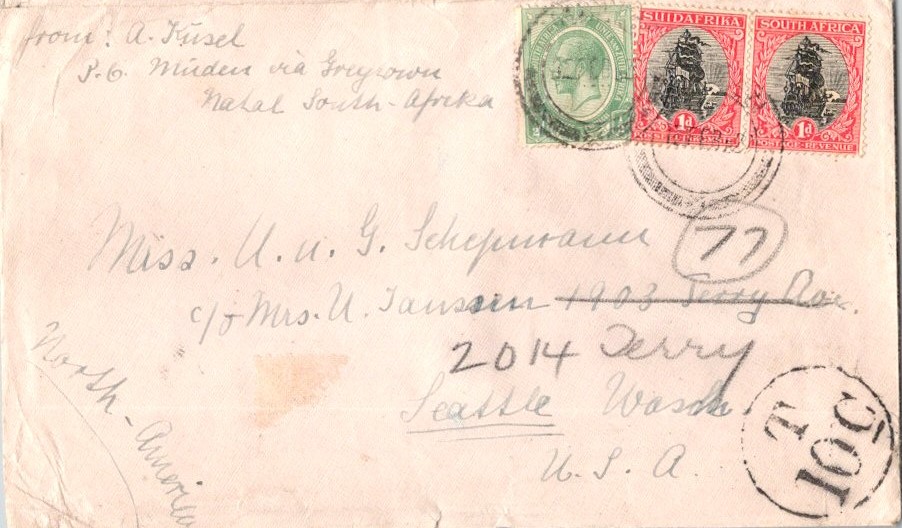 from: A. Küsel
P.O. Müden via Greytown
Natal South-Afrika
SUIDAFRIKA
1d
SOUTH AFRICA
1d
POSTAGE-REVENUE
Miss. U. u. G. Schepmann
77
c/o Mrs. U. Janssen 1903 Terry Ave.
2014 Terry
Seattle Wasch.
U. S. A.
North-America
T
10C